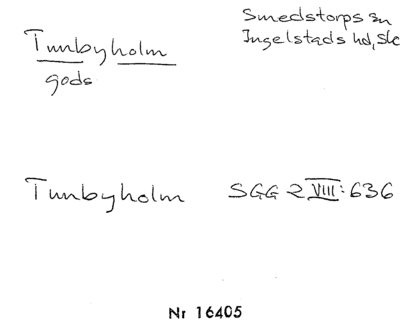 Tunbyholm
gods
Smedstorps sn
Ingelstads hd, Sk
Tunbyholm SGG 2 VIII:636
Nr 16405